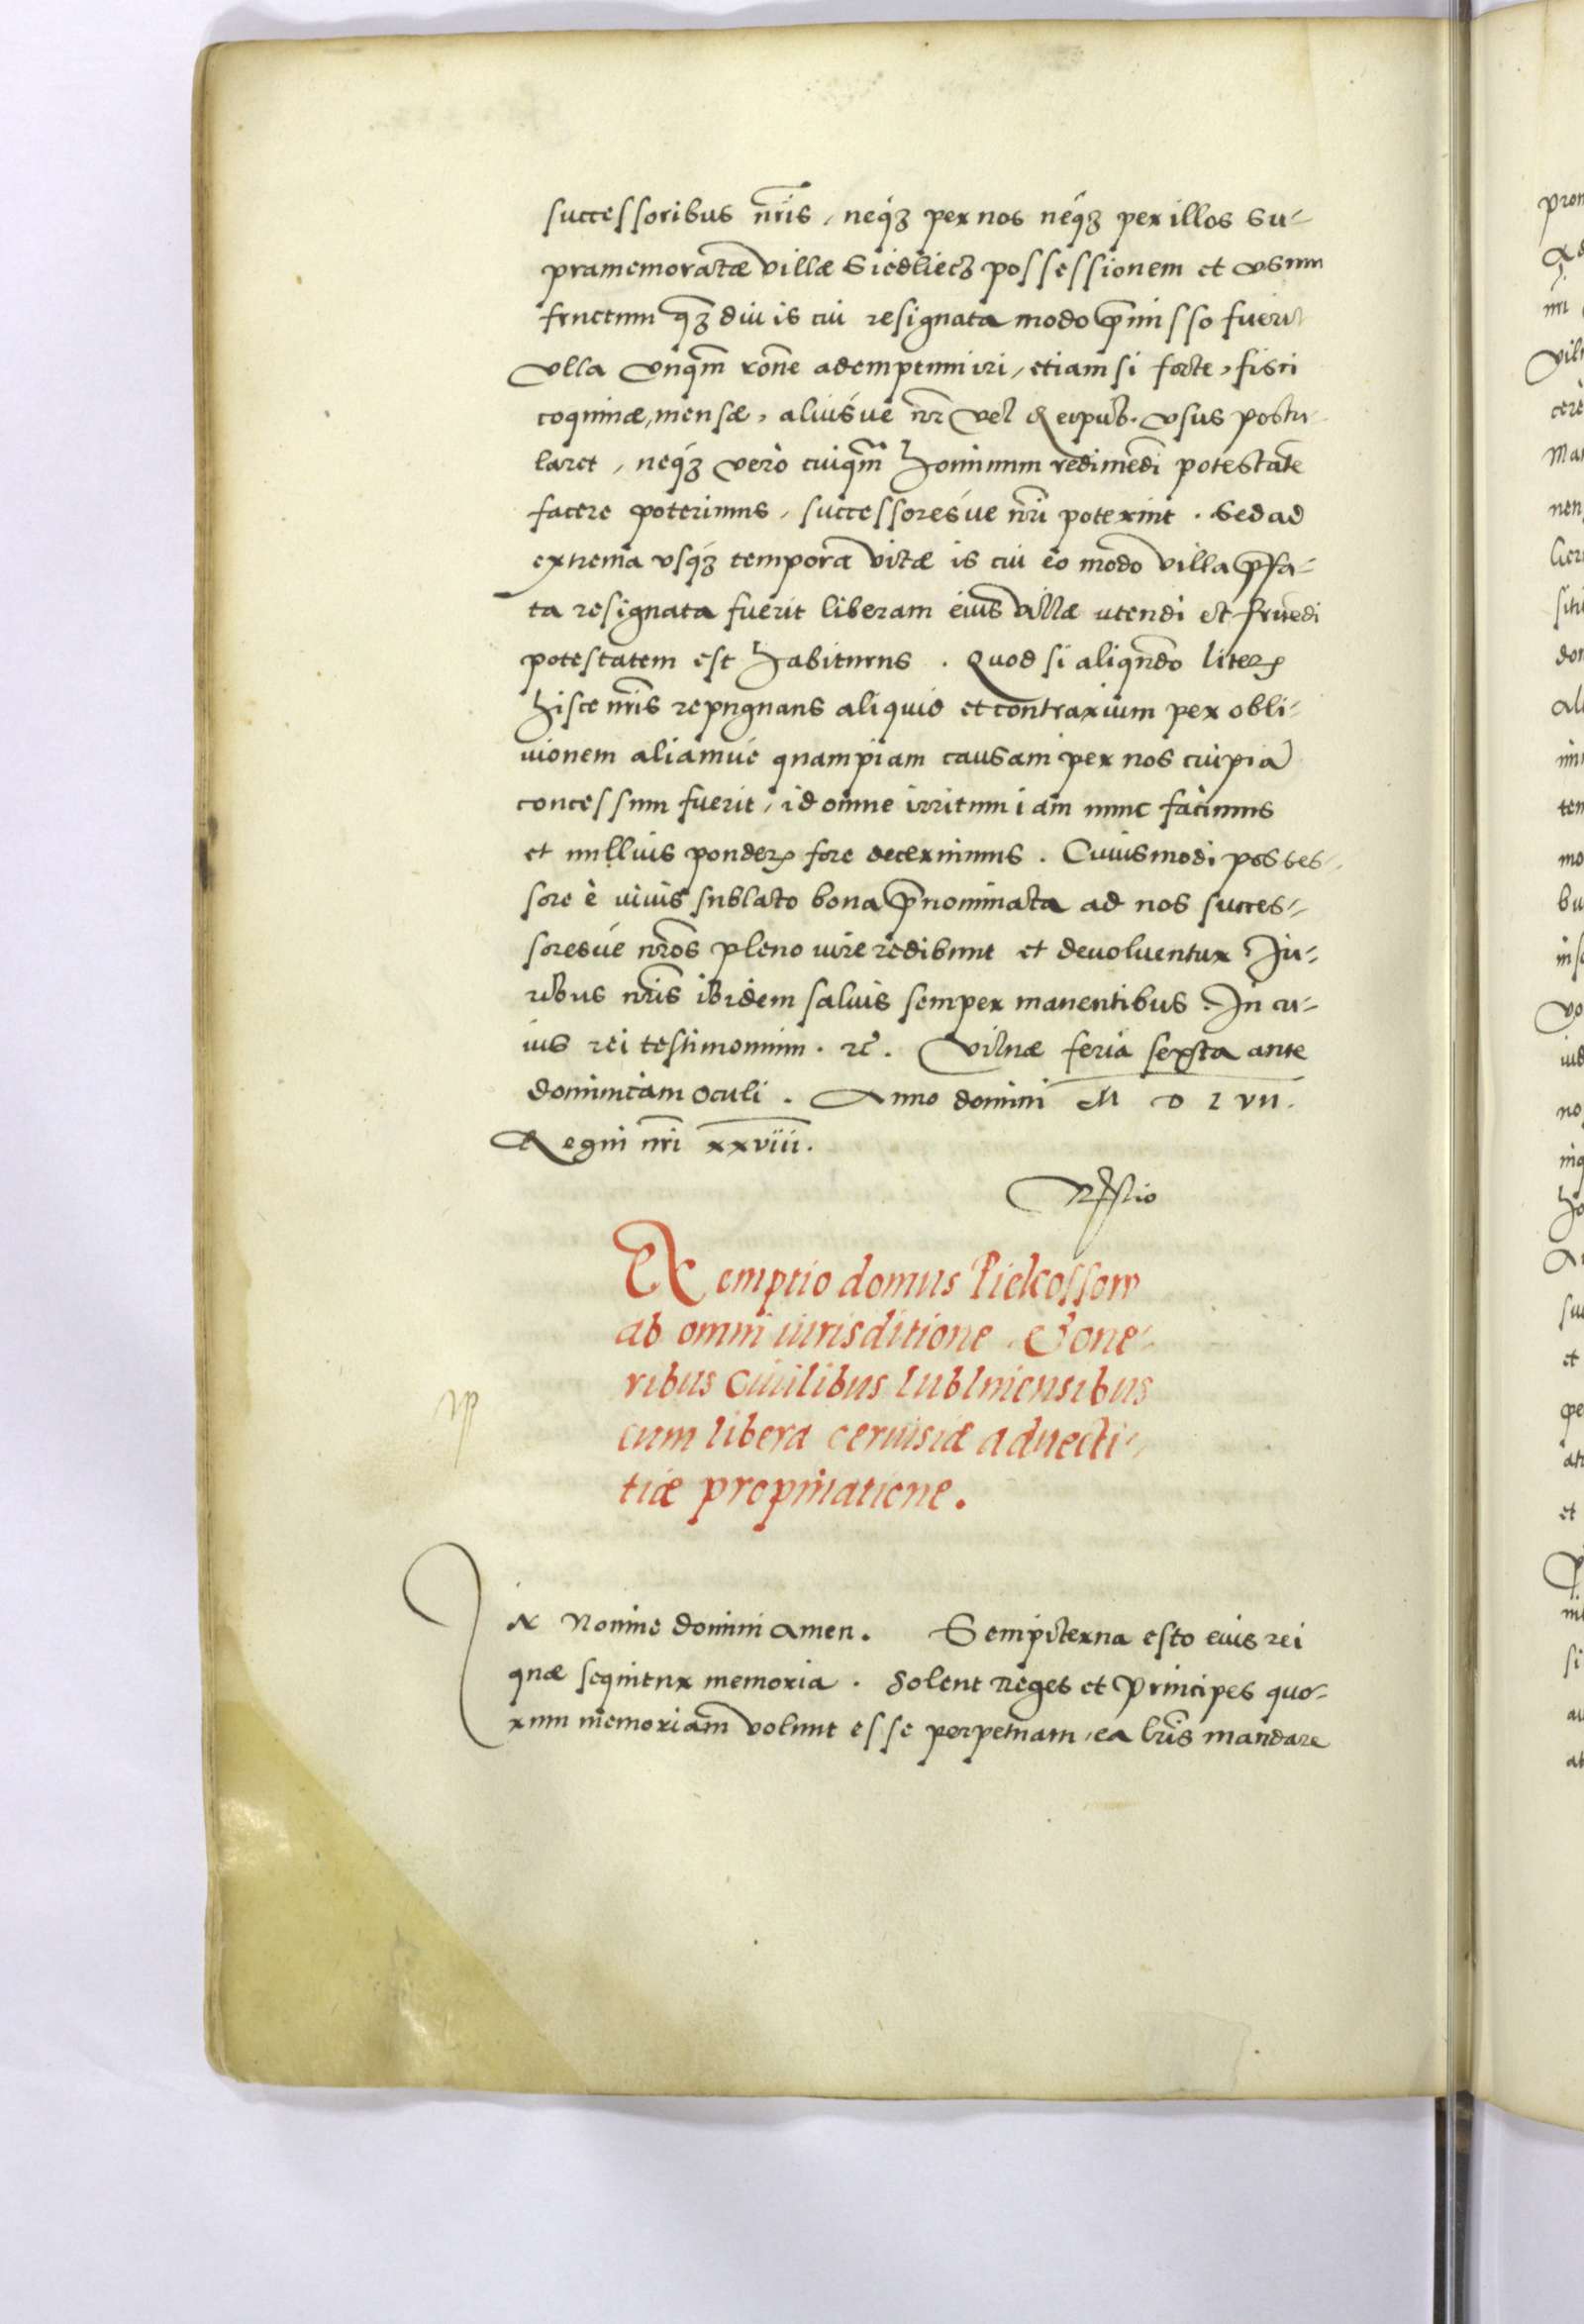 successoribus nr̃is, neq́ȝ per nos neq́ȝ per illos su-
pramemoratæ villæ Siedliecȝ possessionem et vsum
fructum q̃ȝ diu is cui resignata modo p̃misso fuerit
vlla vnq̃m rõne adempturum iri, etiam si forte, fisci
coquinæ, mensæ, aliusúe nr̃ vel Reipub. vsus postu-
laret, neq́ȝ verò cuiq̃m hominum redimẽdi potestatẽ
facere poterimus, successoresúe nr̃i poterint. Sed ad
extrema vsq́ȝ tempora vitæ is cui eo modo villa p̃fa-
ta resignata fuerit liberam eius villæ utendi et fruẽdi
potestatem est habiturus. Quod si aliqñdo literꝭ
hisce nr̃is repugnans aliquid et contrarium per obli-
uionem aliamúe quampiam causam per nos cuipiã
concessum fuerit, id omne irritum iam nunc facimus
et nullius ponderꝭ fore decernimus. Cuiusmodi posses-
sore è viuis sublato bona p̃nominata ad nos succes-
soresúe nr̃os pleno iure redibunt et deuoluentur Ju-
ribus nr̃is ibidem saluis semper manentibus. In cu-
ius rei testimonium. ꝛc̃. Vilnæ feria sexta ante
dominicam Oculi. Anno domini M D L VII.
Regni nr̃i xxviii.
Exemptio domus Pielcossow
ab omni iurisditione. & one-
ribus Ciuilibus Lublinensibus
cum libera ceruisiæ aduecti-
tiæ propinatione.
In Nomine domini amen. Sempiterna esto eius rei
quæ sequitur memoria. Solent Reges et Principes quo-
rum memoriam volunt esse perpetuam, ea lr̃is mandare